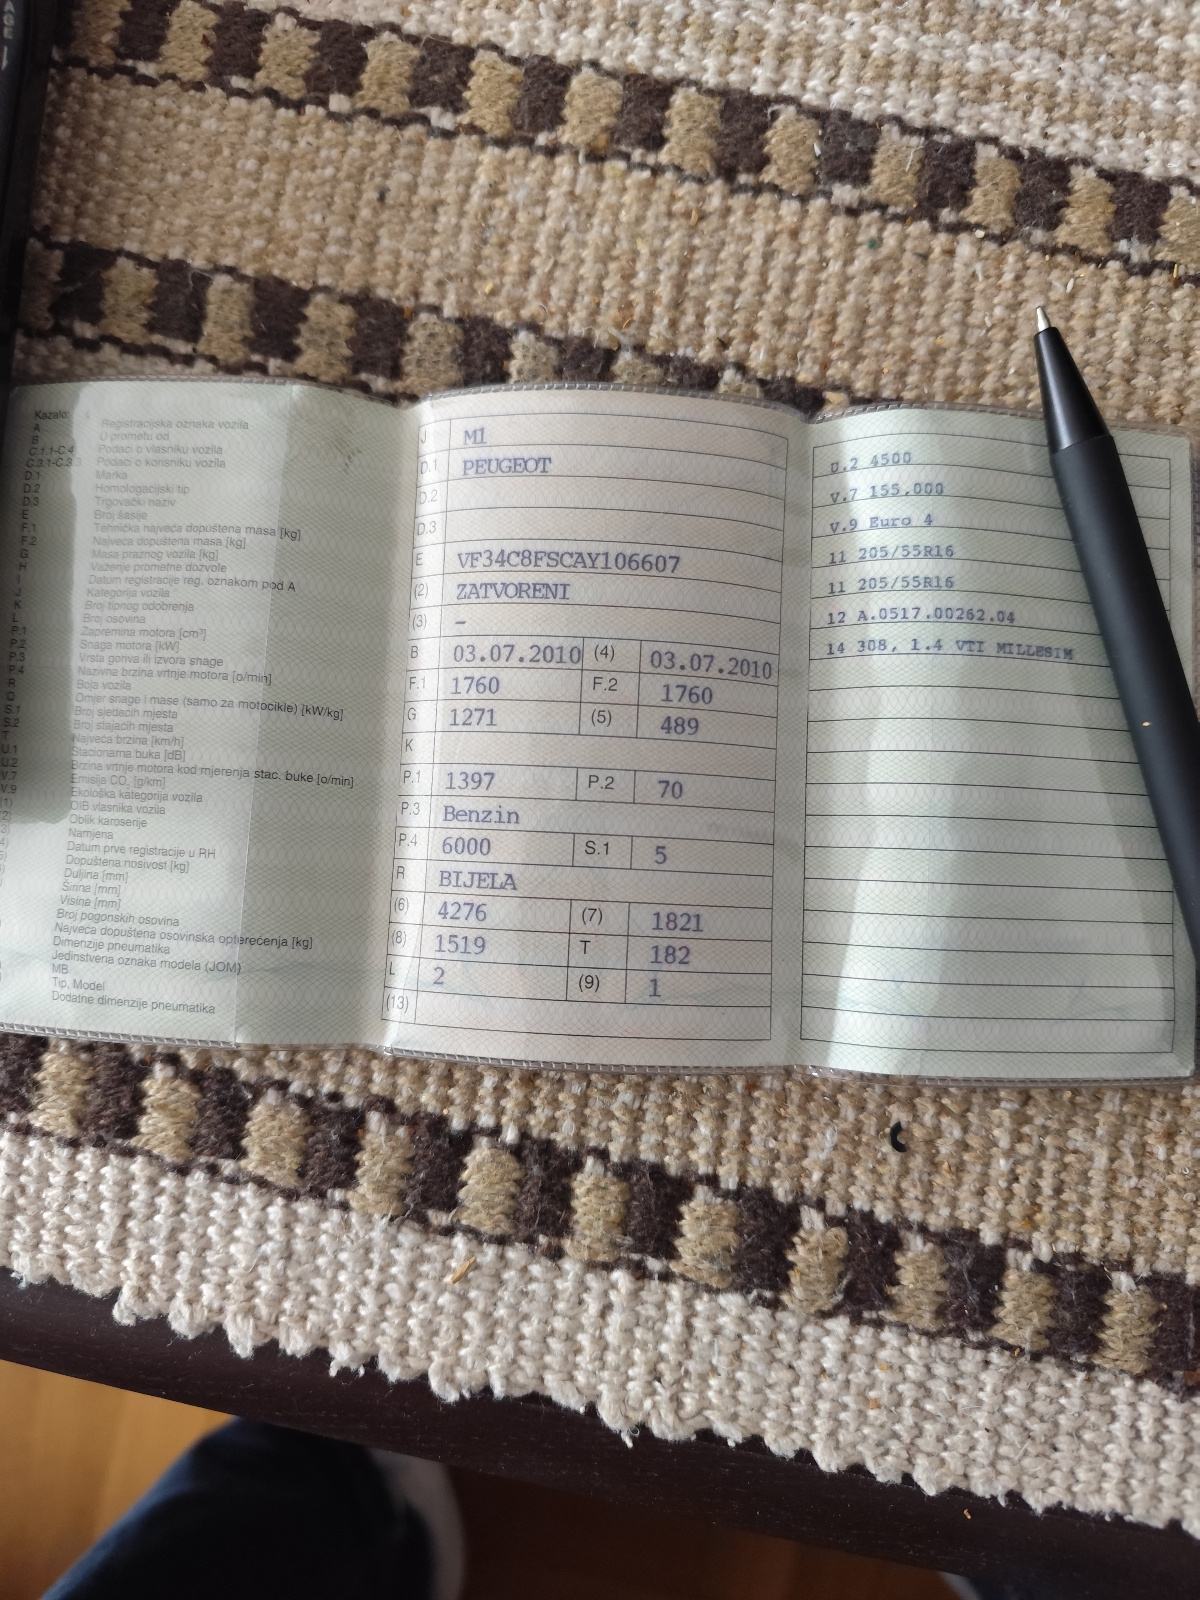 AGE
Kazalo:
A Registracijska oznaka vozila
B U prometu od
C.1.1-C.4 Podaci o vlasniku vozila
C.3.1-C.3.3 Podaci o korisniku vozila
D.1 Marka
D.2 Homologacijski tip
D.3 Trgovački naziv
E Broj šasije
F.1 Tehnička najveća dopuštena masa [kg]
F.2 Najveća dopuštena masa [kg]
G Masa praznog vozila [kg]
H Važenje prometne dozvole
I Datum registracije reg. oznakom pod A
J Kategorija vozila
K Broj tipnog odobrenja
L Broj osovina
P.1 Zapremina motora [cm³]
P.2 Snaga motora [kW]
P.3 Vrsta goriva ili izvora snage
P.4 Nazivna brzina vrtnje motora [o/min]
R Boja vozila
Q Omjer snage i mase (samo za motocikle) [kW/kg]
S.1 Broj sjedaćih mjesta
S.2 Broj stajaćih mjesta
T Najveća brzina [km/h]
U.1 Stacionarna buka [dB]
U.2 Brzina vrtnje motora kod mjerenja stac. buke [o/min]
V.7 Emisija CO₂ [g/km]
V.9 Ekološka kategorija vozila
(1) OIB vlasnika vozila
2) Oblik karoserije
3) Namjena
4) Datum prve registracije u RH
5) Dopuštena nosivost [kg]
Duljina [mm]
Širina [mm]
Visina [mm]
Broj pogonskih osovina
Najveća dopuštena osovinska opterećenja [kg]
Dimenzije pneumatika
Jedinstvena oznaka modela (JOM)
MB
Tip, Model
Dodatne dimenzije pneumatika
J M1
D.1 PEUGEOT
D.2
D.3
E VF34C8FSCAY106607
(2) ZATVORENI
(3) –
B 03.07.2010 (4) 03.07.2010
F.1 1760 F.2 1760
G 1271 (5) 489
K
P.1 1397 P.2 70
P.3 Benzin
P.4 6000 S.1 5
R BIJELA
(6) 4276 (7) 1821
(8) 1519 T 182
L 2 (9) 1
(13)
U.2 4500
V.7 155,000
V.9 Euro 4
11 205/55R16
11 205/55R16
12 A.0517.00262.04
14 308, 1.4 VTI MILLESIM